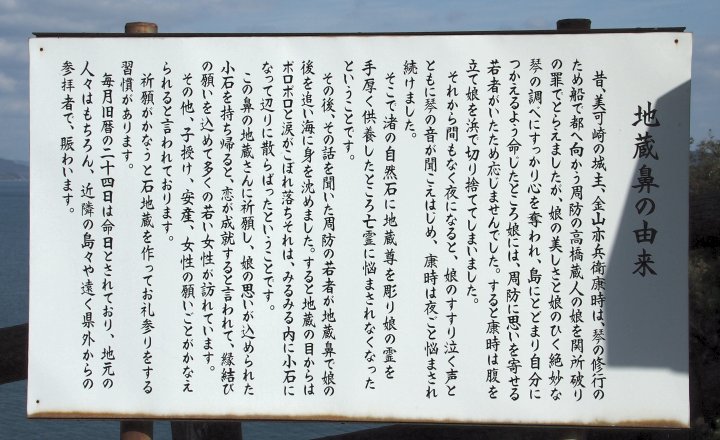 地蔵鼻の由来
昔、美可崎の城主、金山亦兵衛康時は、琴の修行の
ため船で都へ向かう周防の高橋蔵人の娘を関所破り
の罪でとらえましたが、娘の美しさと娘のひく絶妙な
琴の調べにすっかり心を奪われ、島にとどまり自分に
つかえるよう命じたところ娘には、周防に思いを寄せる
若者がいたため応じませんでした。すると康時は腹を
立て娘を浜で切り捨ててしまいました。
それから間もなく夜になると、娘のすすり泣く声と
ともに琴の音が聞こえはじめ、康時は夜ごと悩まされ
続けました。
そこで渚の自然石に地蔵尊を彫り娘の霊を
手厚く供養したところ亡霊に悩まされなくなった
ということです。
その後、その話を聞いた周防の若者が地蔵鼻で娘の
後を追い海に身を沈めました。すると地蔵の目からは
ポロポロと涙がこぼれ落ちそれは、みるみる内に小石に
なって辺りに散らばったということです。
この鼻の地蔵さんに祈願し、娘の思いが込められた
小石を持ち帰ると、恋が成就すると言われて、縁結び
の願いを込めて多くの若い女性が訪れています。
その他、子授け、安産、女性の願いごとがかなえ
られると言われております。
祈願がかなうと石地蔵を作ってお礼参りをする
習慣があります。
毎月旧暦の二十四日は命日とされており、地元の
人々はもちろん、近隣の島々や遠く県外からの
参拝者で、賑わいます。